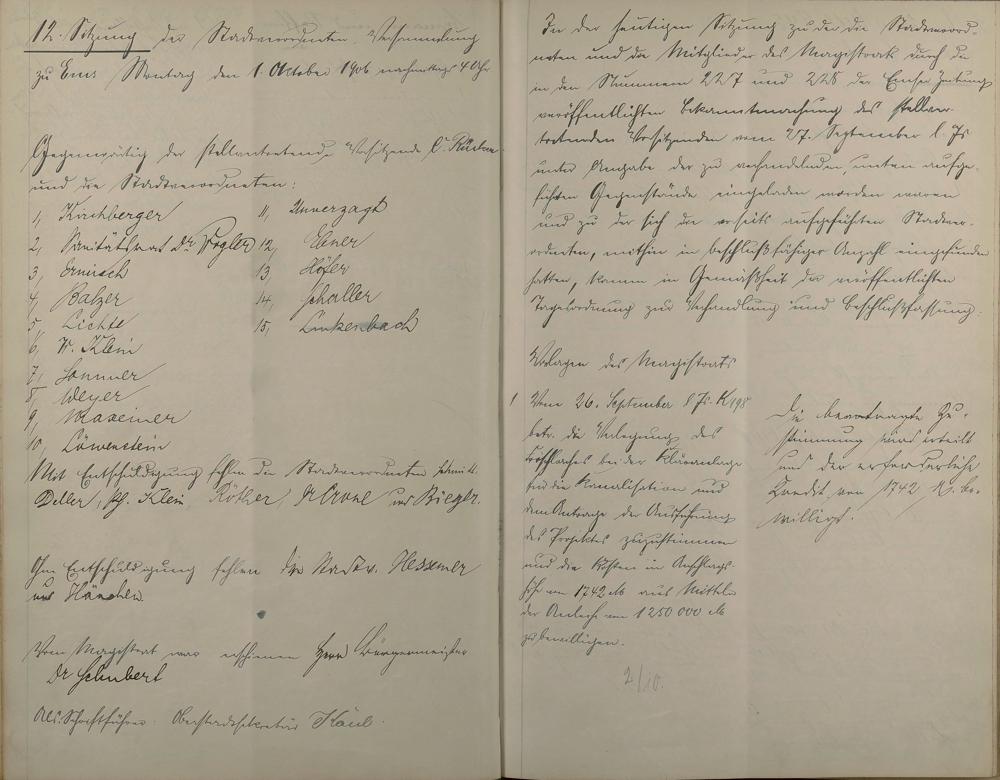 12. Sitzung der Stadtverordneten Versammlung
zu Ems Montag den 1. October 1906 nachmittags 4 Uhr
Gegenwärtig der stellvertretende Vorsitzende C.
und die Stadtverordneten:
1, Kirchberger
2, Sanitätsrat Dr Vogler
3, Ermisch
4, Balzer
5, Lichte
6, W. Klein
7, Sommer
8, Weyer
9, Maxeiner
10, Löwenstein
11, Unverzagt
12, Ebner
13, Höfer
14, Schaller
15, Linkenbach
Mit Entschuldigung fehlen die Stadtverordneten Schmitt
Deller, Ph. Klein, Röther, Dr Crone und Rieger.
Ohne Entschuldigung fehlen die Stadtv. Hessemer
und Hänchen
Vom Magistrat war erschienen Herr Bürgermeister
Dr Schubert
Als Schriftführer: Oberstadtsekretär Kaul.
In der heutigen Sitzung zu der die Stadtverord-
neten und die Mitglieder des Magistrats durch die
in den Nummern 227 und 228 der Emser Zeitung
veröffentlichten Bekanntmachung des stellver-
tretenden Vorsitzenden vom 27. September l. Js
unter Angabe der zu verhandelnden, unten aufge-
führten Gegenstände eingeladen worden waren
und zu der sich die vorseits aufgeführten Stadtver-
ordneten, mithin in beschlußfähiger Anzahl eingefunden
hatten, kamen in Gemäßheit der veröffentlichten
Tagesordnung zur Verhandlung und Beschlußfassung.
Vorlagen des Magistrats
1 Vom 26. September l Js. K 198
betr. die Verlegung des
bei der Kläranlage
für die Kanalisation und
dem Antrage der Ausführung
des Projektes zuzustimmen
und die Kosten in Anschlags-
höhe von 1742 M aus Mitteln
der Anleihe von 1250 000 M
zu bewilligen.
Die beantragte Zu-
stimmung wird erteilt
und der erforderliche
Kredit von 1742 M. be-
willigt.
2/10.